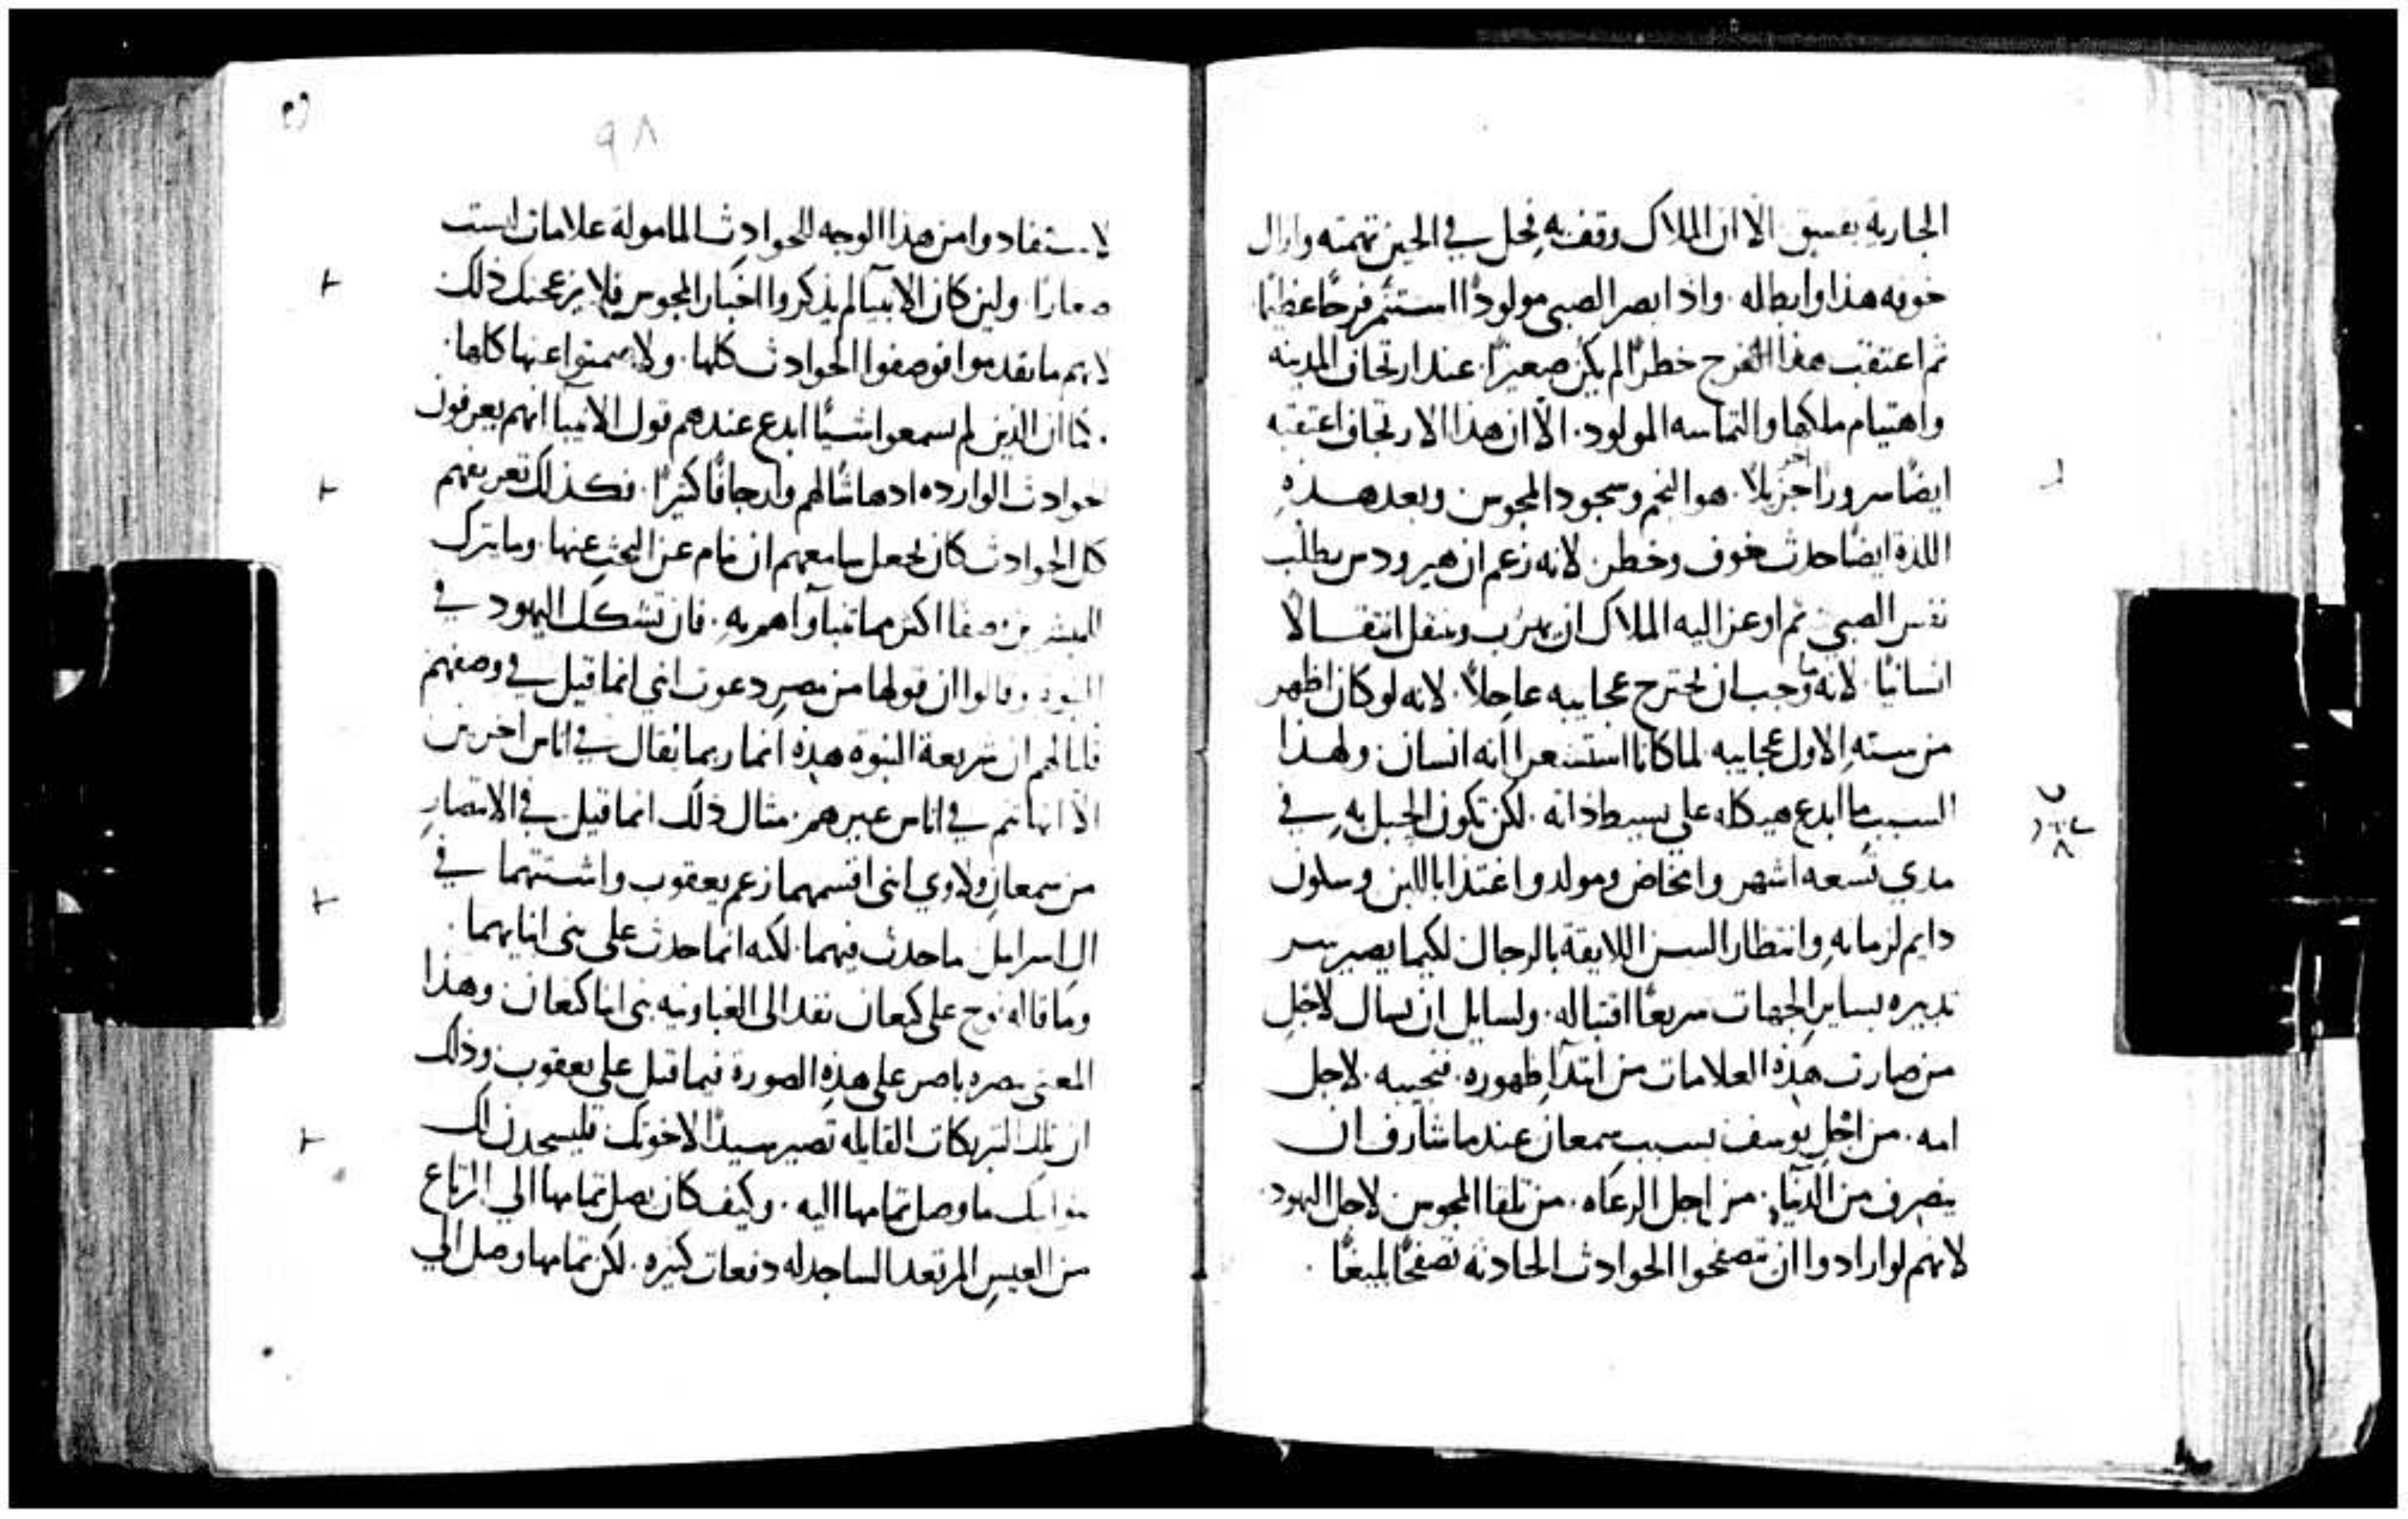 الجاريه بفسق الا ان الملاك وقف به فحل في الحين تهمته وازال
خوفه هذا وابطاله. واذا بصر الصبي مولودًا استثمر فرحًا عظيمًا
ثم اعتقب هذا الفرح خطرًا لم يكن صغيرًا. عند ارتجاف المدينه
واهتيام ملكها والتماسه المولود. الا ان هذا الارتجاف اعتقبه
ايضًا سرورًا اخر جزيلا. هو النجم وسجود المجوس وبعد هذهِ
اللذة ايضًا حدث خوف وخطر. لانه زعم ان هيرودس يطلب
نفس الصبي ثم اوعز اليه الملاك ان يهرب وينتقل انتقالا
انسانيًا. لانه ما وجب ان يجترح عجايبه عاجلاً. لانه لو كان اظهر
من سنتهِ الاولى عجايبه. لما كانا استشعرا انه انسان ولهذا
السبب ما ابدع هيكله على بسيط ذاته. لكن تكون الحبل بهِ في
مدي تسعه اشهر وامخاض ومولد واغتذا باللبن وسلون
دايم لزمانهِ وانتظار السن اللايقة بالرجال لكيما يصير سر
تدبيره بساير الجهات سريعًا اقتباله. ولسايل ان يسال لاجل
من صارت هذه العلامات من ابتدا ظهوره. فنجيبه. لاجل
امه. من اجل يوسف بسبب سمعان عندما شارف ان
ينصرف من الدنيا. من اجل الرعاه. من تلقا المجوس لاجل اليهود.
لانهم لو ارادوا ان يتصفحوا الحوادث الحادثه تصفحًا بليغًا.
٩٨
لاستفادوا من هذا الوجه للحوادث المامولة علامات ليست
صغارًا. ولين كان الانبيا لم يذكروا اخبار المجوس فلا يزعجنك ذلك
لانهم ما تقدموا فوصفوا الحوادث كلها. ولا صمتوا عنها كلها.
كما ان الذين لم يسمعوا شيًا ابدع عندهم قول الانبيا انهم يعرفون
الحوادث الوارده ادهاشًا لهم وارتجافًا كثيرًا. فكذلك تعريفهم
كل الحوادث كان يجعل سامعهم ان ينام عن البحث عنها. وما يترك
للمبشرين وصفا اكثر مما تنباوا هم بهِ. فان تشكك اليهود في
النبوه وقالوا ان قولها من مصر دعوت ابني انما قيل في وصفهم
قلنا لهم ان شريعة النبوه هذه انما ربما تقال في اناس اخرين
الا انها تتم في اناس غيرهم. مثال ذلك انما قيل في الاقتصار
من سمعان ولاوي انني اقسمهما زعم يعقوب واشتتهما في
ال اسراييل ما حدث فيهما. لكنه انما حدث على بني ابنايهما.
وما قاله نوح على كنعان نفد الى الغباونيه بني ابنا كنعان وهذا
المعنى بصره باصر على هذه الصورة فيما قيل على يعقوب. وذلك
ان تلك التبريكات القايله تصير سيدًا لاخوتك فليسجدن لك
بنو ابيك ما وصل تمامها اليه. وكيف كان يصل تمامها الي المرتاع
من العيس المرتعد الساجد له دفعات كثيره. لكن تمامها وصل الي